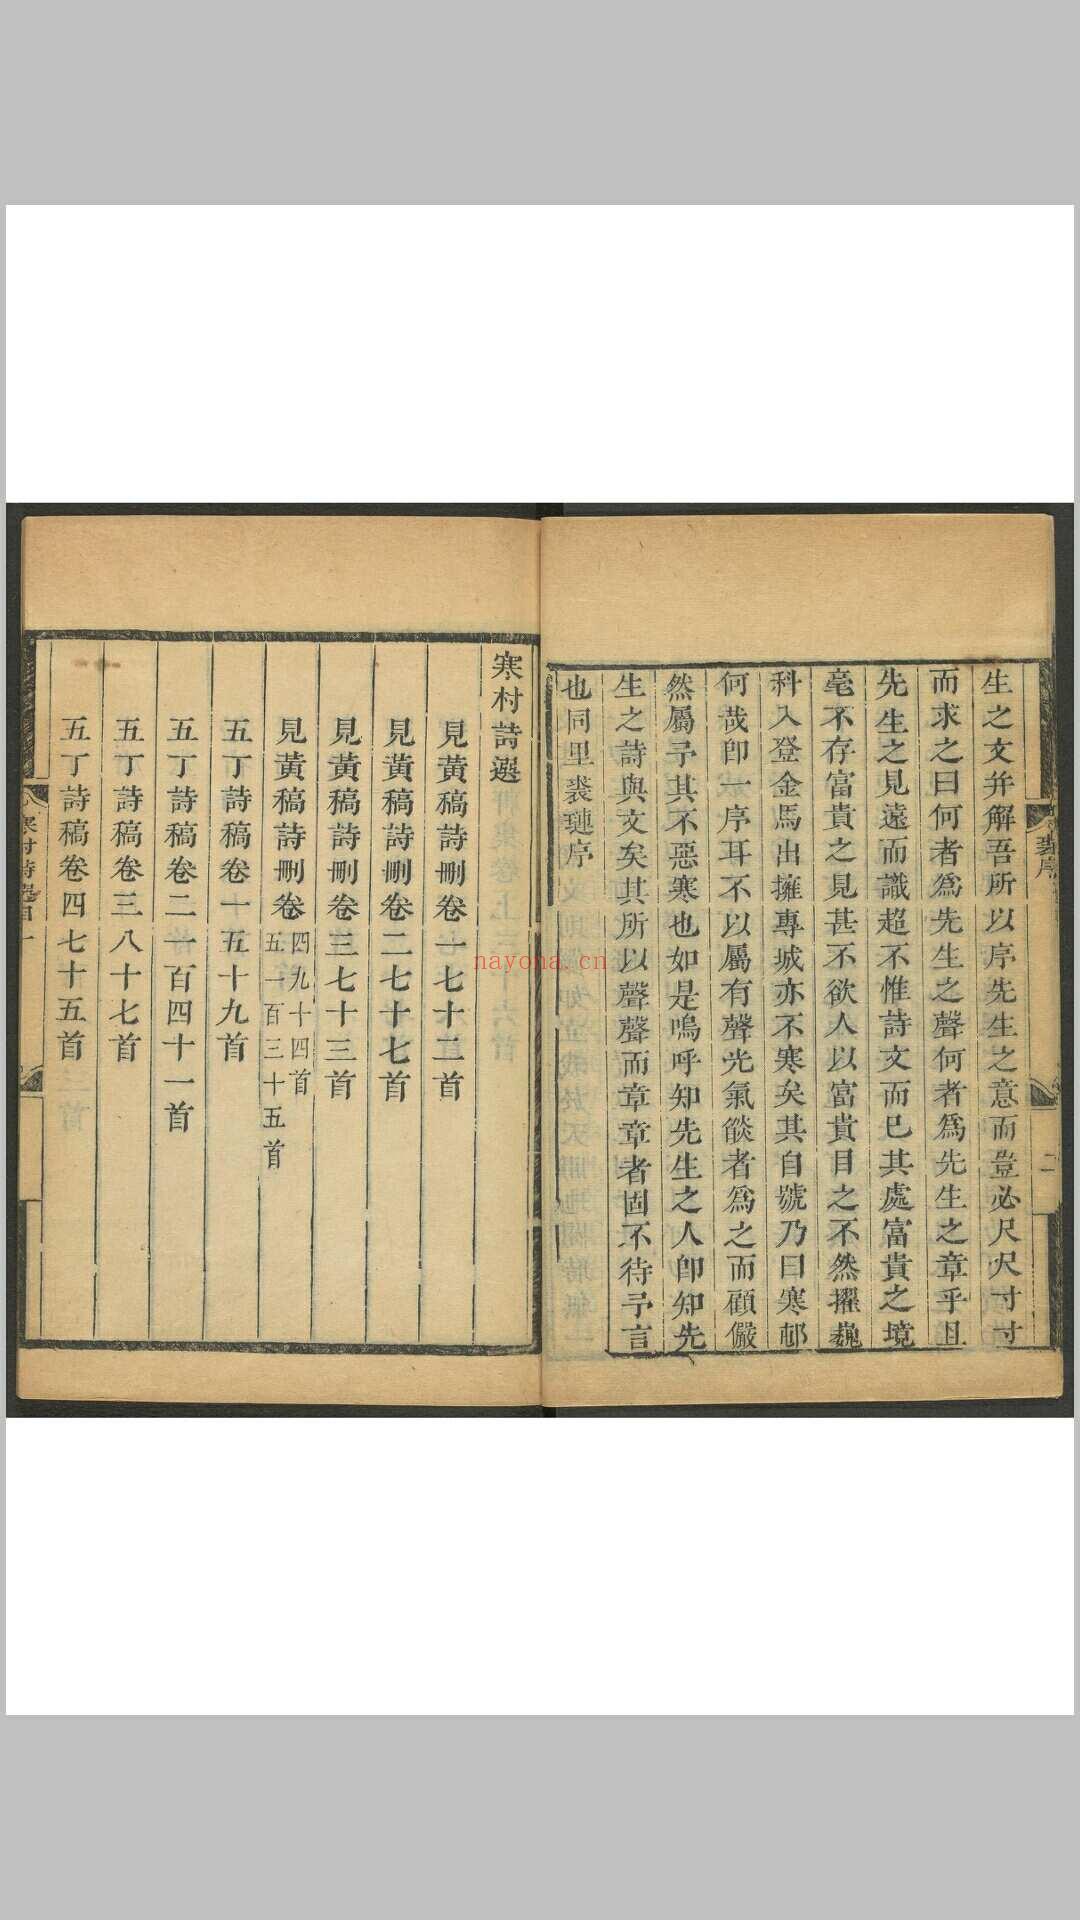 生之文幷解吾所以序先生之意而豈必尺尺寸寸
而求之曰何者爲先生之聲何者爲先生之章乎且
先生之見遠而識超不惟詩文而已其處富貴之境
毫不存富貴之見甚不欲人以富貴目之不然擢巍
科入登金馬出擁專城亦不寒矣其自號乃曰寒邨
何哉卽一序耳不以屬有聲光氣燄者爲之而顧儼
然屬予其不惡寒也如是嗚呼知先生之人卽知先
生之詩與文矣其所以聲聲而章章者固不待予言
也同里裘璉序
二
寒村詩選
見黃稿詩刪卷一七十二首
見黃稿詩刪卷二七十七首
見黃稿詩刪卷三七十三首
見黃稿詩刪卷四九十四首
五一百三十五首
五丁詩稿卷一五十九首
五丁詩稿卷二一百四十一首
五丁詩稿卷三八十七首
五丁詩稿卷四七十五首
nayona.cn